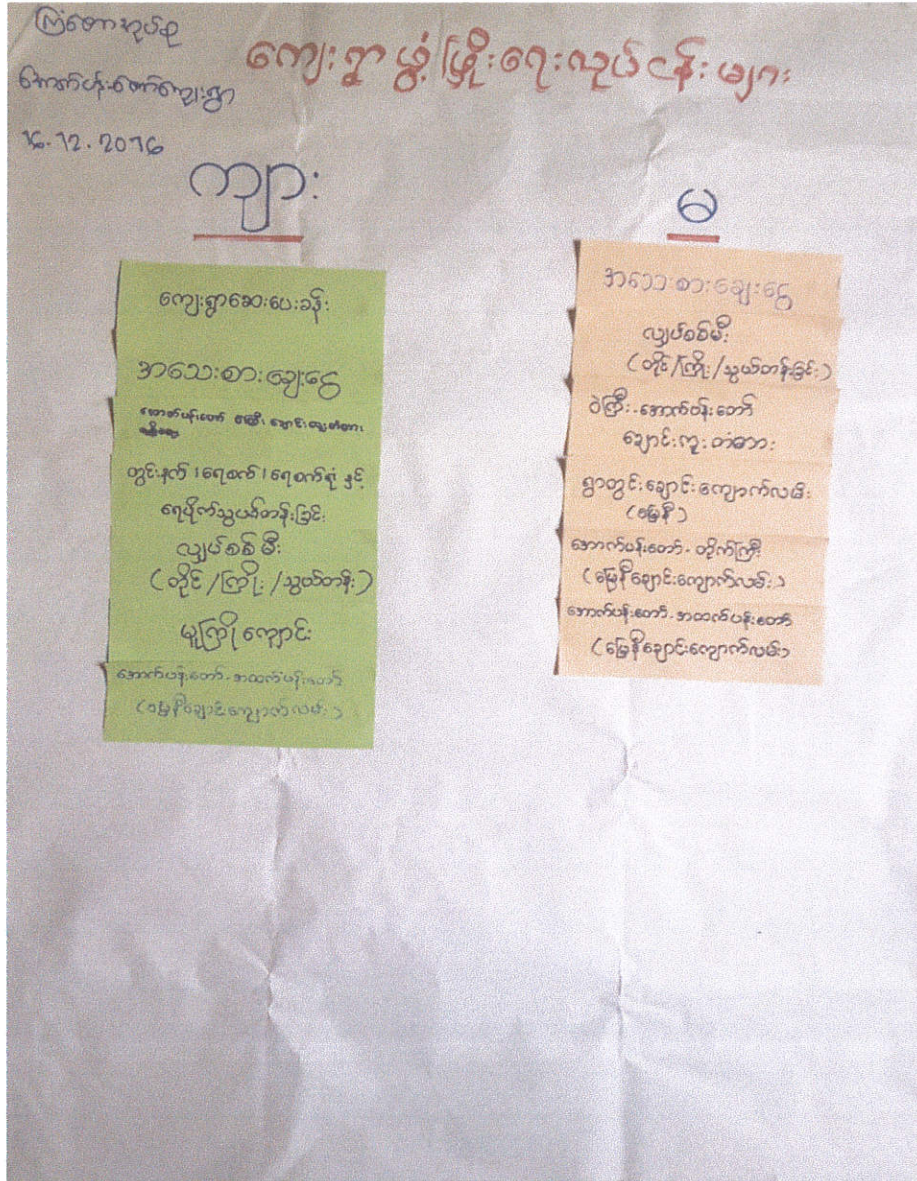 ကြံတောအုပ်စု
အောက်ပန်းတော်ကျေးရွာ
16.12.2016
ကျေးရွာဖွံ့ဖြိုးရေးလုပ်ငန်းများ
ကျား
ကျေးရွာဆေးပေးခန်း
အသေးစားချေးငွေ
အောက်ပန်းတော်
တွင်းနက် ၊ ရေစက် ၊ ရေစက်ရုံ နှင့်
ရေပိုက်သွယ်တန်းခြင်း
လျှပ်စစ်မီး
(တိုင်/ကြိုး/သွယ်တန်း)
မူကြိုကျောင်း
အောက်ပန်းတော်-အထက်ပန်းတော်
(မြေနီချောင်းကျောက်လမ်း)
မ
အသေးစားချေးငွေ
လျှပ်စစ်မီး
(တိုင်/ကြိုး/သွယ်တန်းခြင်း)
ဝဲကြီး-အောက်ပန်းတော်
ချောင်းကူးတံတား
ရွာတွင်းချောင်းကျောက်လမ်း
(မြေနီ)
အောက်ပန်းတော်-တိုက်ကြီး
(မြေနီချောင်းကျောက်လမ်း)
အောက်ပန်းတော်-အထက်ပန်းတော်
(မြေနီချောင်းကျောက်လမ်း)